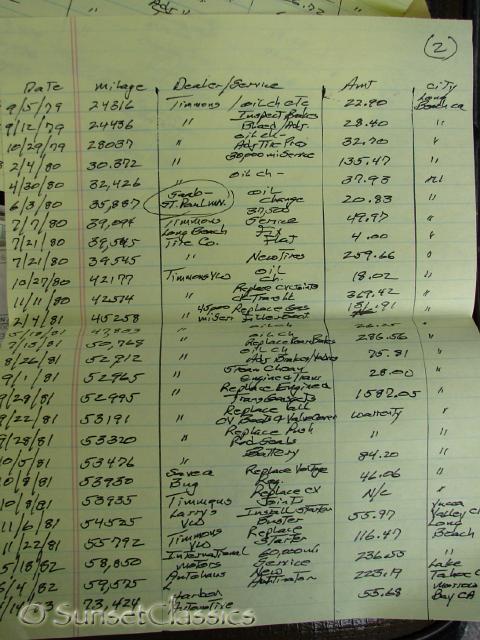 (2)
Date milage Dealer/Service Amt City
9/5/79 24316 Timmons /oil ch etc 22.90 Long Beach Ca
9/12/79 24436 " Inspect Brakes Bleed/Adj. 28.40 "
10/29/79 28037 " oil ch - Adj 32.70 "
2/4/80 30.372 " 30,000 mi Service 135.47 "
4/30/80 32,426 oil ch - 37.93
6/3/80 35,887 St. Paul MN. oil change 20.83 "
7/7/80 39,094 Timmons 37,500 Service 49.97 "
7/21/80 39,545 Long Beach Tire Co. Fix Flat 4.00 "
7/21/80 39545 " New Tires 259.66 "
10/27/80 42177 Timmons VW oil ch. 18.02 "
11/11/80 42574 " Replace CV Joints 369.42 "
2/4/81 45258 45,000 mi Serv Replace Gas 151.91 "
" oil ch
7/13/81 50,768 " oil ch Replace Rear Brakes 286.56 "
8/26/81 52,912 " oil ch Adj Brakes/Valves 75.81 "
9/1/81 52965 " Steam Clean Engine & Trans 28.00 "
9/28/81 52995 " Replace Engine & Trans Gaskets 1587.05 "
9/22/81 53191 " Replace CV Boot & Valve Cover warranty "
9/28/81 53320 " Replace Push Rod Seals " "
10/5/81 53476 " Battery 84.20 "
53930 Save a Bug Replace Voltage Reg. 46.06 "
10/8/81 53935 Timmons Replace CV Joints N/C "
11/6/81 54525 Larry's VW Install Starter Buster 55.97 Yucca Valley C
11/22/81 55792 Timmons VW Replace Starter 116.47 Long Beach
5/18/82 58,850 International Motors 60,000 mi Service 236.55 "
6/4/82 59,575 Autohaus New 223.19 Lake Tahoe C
73,424 Harbor Automotive 55.68 Morro Bay CA
SunsetClassics